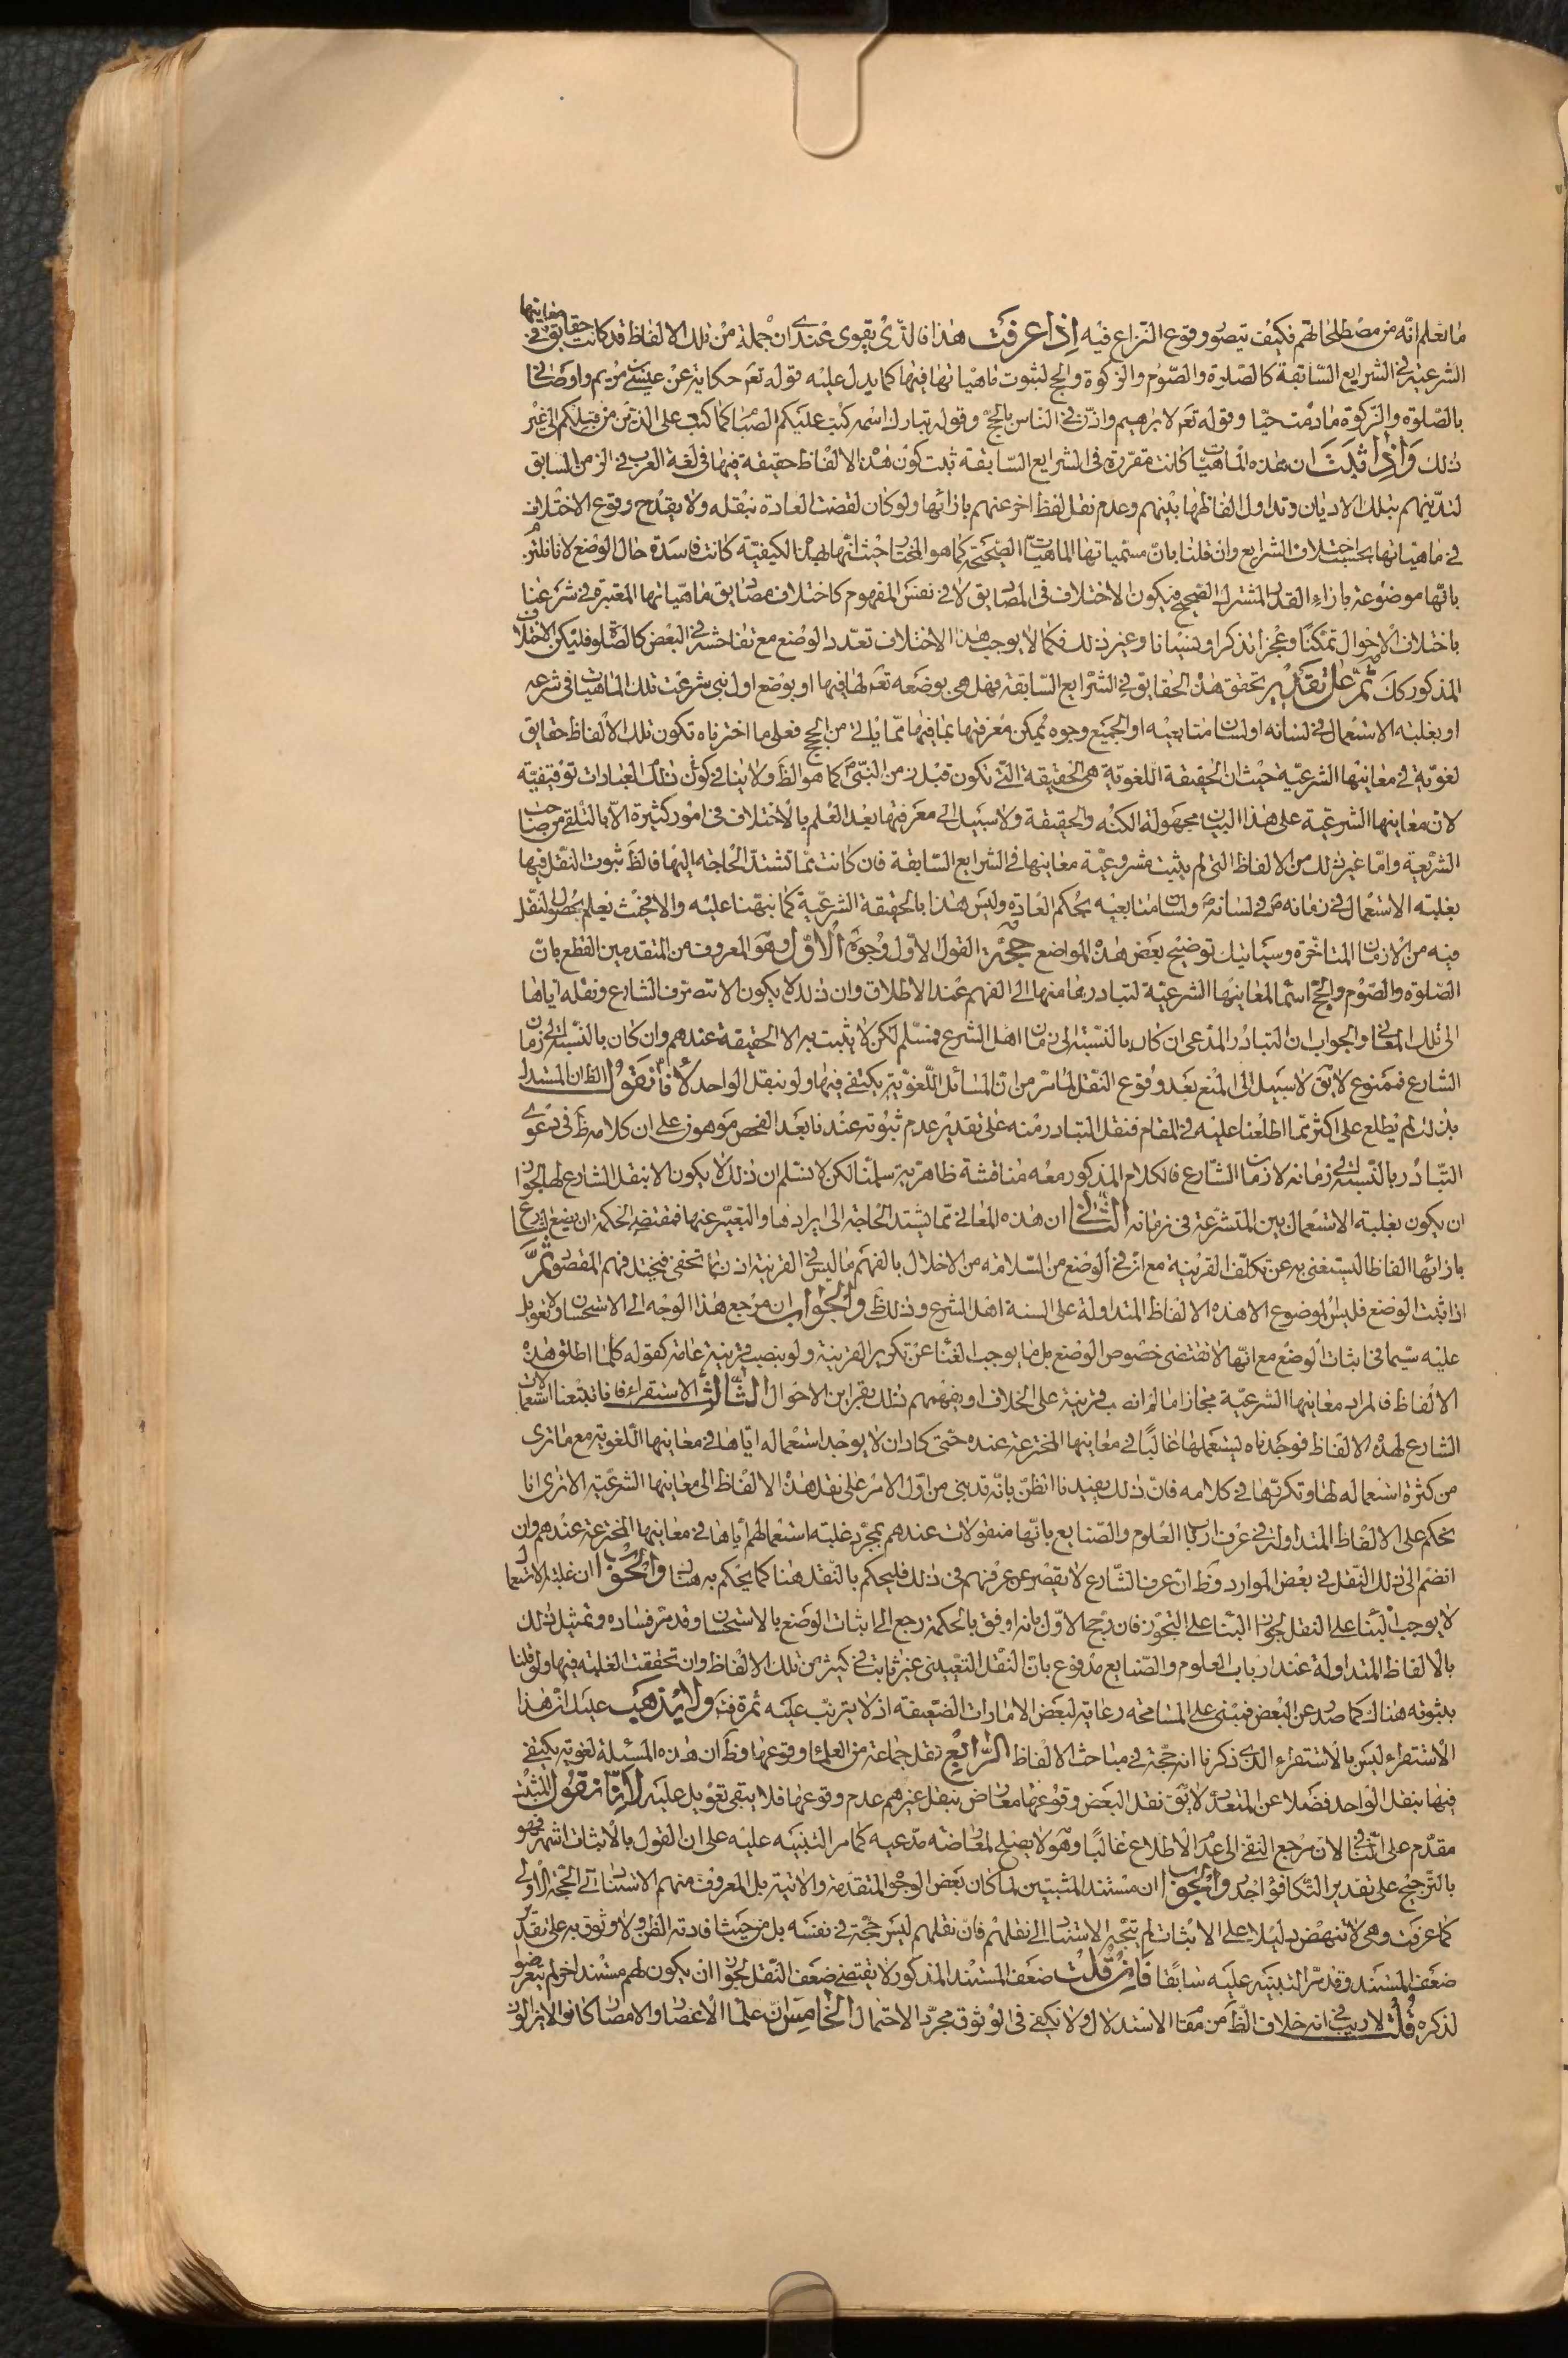 ما نعلم انّه من مصطلحاتهم فكيف يتصوّر وقوع النزاع فيه اذا عرفت هذا فالذى يقوى عندى ان جملة من تلك الالفاظ قد كانت حقايق فى معانيها
الشرعيّة فى الشرايع السّابقة كالصّلوة والصّوم والزكوة والحج لثبوت ماهيّاتها فيها كما يدل عليه قوله تعم حكاية عن عيسى بن مريم واوصانى
بالصّلوة والزّكوة ما دمت حيّا وقوله تعم لابرهيم واذّن فى الناس بالحجّ وقوله تبارك اسمه كتب عليكم الصّيام كما كتب على الذين من قبلكم الى غير
ذلك واذا ثبت ان هذه الماهيّات كانت مقرّرة فى الشرايع السّابقة ثبت كون هذه الالفاظ حقيقة فيها فى لغة العرب فى الزمن السابق
لتديّنهم بتلك الاديان وتداول الفاظها بينهم وعدم نقل لفظ اخر عنهم بازائها ولو كان لقضت العادة بنقله ولا يقدح وقوع الاختلاف
فى ماهيّاتها بحسب اختلاف الشرايع وان قلنا بانّ مسمّياتها الماهيّات الصّحيحة كما هو المختار حيث انّها بهذه الكيفيّة كانت فاسدة حال الوضع لانا نلتزم
بانّها موضوعة بازاء القدر المشترك الصّحيح فيكون الاختلاف فى المصاديق لا فى نفس المفهوم كاختلاف مصاديق ماهيّاتها المعتبرة فى شرعنا
باختلاف الاحوال تمكّنا وعجزا تذكرا ونسيانا وغير ذلك فكما لا يوجب هذا الاختلاف تعدد الوضع مع تفاحشه فى البعض كالصّلوة فليكن الاختلاف
المذكور كك ثمّ على تقدير تحقق هذه الحقايق فى الشّرايع السّابقة فهل هى بوضعه تعم لها فيها او بوضع اول نبى شرعت تلك الماهيات فى شرعه
او بغلبة الاستعمال فى لسانه او لسان متابعيه او الجميع وجوه يمكن معرفتها بما فيها ممّا يأتى من الحجج فعلى ما اخترناه تكون تلك الالفاظ حقايق
لغويّة فى معانيها الشرعيّة حيث ان الحقيقة اللغويّة هى الحقيقة الّتى تكون قبل زمن النبىّ ص كما هو الظّ ولا ينافى كون تلك العبارات توقيفيّة
لان معانيها الشرعيّة على هذا البيان مجهولة الكنه والحقيقة ولا سبيل الى معرفتها بعد العلم بالاختلاف فى امور كثيرة الّا بالتلقى من صاحب
الشّريعة وامّا غير ذلك من الالفاظ التى لم يثبت مشروعيّة معانيها فى الشرايع السّابقة فان كانت ممّا تشتدّ الحاجة اليها فالظّ ثبوت النّقل فيها
بغلبة الاستعمال فى زمانه ص فى لسانه ص ولسان متابعيه بحكم العادة وليس هذا بالحقيقة الشرعيّة كما نبّهنا عليه والا فبحيث نعلم بحصول النقل
فيه من الازمان المتاخّرة وسيأتيك توضيح بعض هذه المواضع حجّة القول الاوّل وجوه الاوّل وهو المعروف من المتقدمين القطع بانّ
الصّلوة والصّوم والحجّ اسماء لمعانيها الشرعيّة لتبادرها منها الى الفهم عند الاطلاق وان ذلك لا يكون الا بتصرف الشارع ونقله اياها
الى تلك المعانى والجواب ان التبادر المدّعى ان كان بالنّسبة الى زمان اهل الشرع فمسّلم لكن لا يثبت به الا الحقيقة عندهم وان كان بالنّسبة الى زمان
الشارع فممنوع لا يق لا سبيل الى المنع بعد وقوع النّقل لما مرّ من انّ المسائل اللّغويّة يكتفى فيها ولو بنقل الواحد لانّا نقول الظّ ان المستدل
بذلك لم يطلع على اكثر ممّا اطلعنا عليه فى المقام فنقل التبادر منه على تقدير عدم ثبوته عندنا بعد الفحص موهون على ان كلامه ظّ فى دعوى
التّبادر بالنّسبة الى زمانه لا زمان الشّارع فالكلام المذكور معه مناقشة ظاهريّة سلّمنا لكن لا نسّلم ان ذلك لا يكون الا بنقل الشارع لها لجواز
ان يكون بغلبة الاستعمال بين المتشرّعة فى زمانه الثّانى ان هذه المعانى ممّا يشتد الحاجة الى ايرادها والتعبير عنها فمقتضى الحكمة ان يضع الشارع
بازائها الفاظا ليستغنى به عن تكلّف القرينة مع انّ فى الوضع من السّلامة من الاخلال بالفهم ما ليس فى القرينة اذ ربما تخفى فيختل فهم المقصود ثمّ
اذا ثبت الوضع فليس الموضوع الا هذه الالفاظ المتداولة على السنة اهل الشرع وذلك ظّ والجواب ان مرجع هذا الوجه الى الاستحسان ولا تعويل
عليه سيّما فى اثبات الوضع مع انّها لا تقتضى خصوص الوضع بل ما يوجب الغناء عن تكرير القرينة ولو بنصب قرينة عامة كقوله كلّما اطلق هذه
الالفاظ فالمراد معانيها الشرعيّة مجازا ما لم انصب قرينة على الخلاف او بفهمهم ذلك بقراين الاحوال الثّالث الاستقراء فانا تتبّعنا استعمالات
الشارع لهذه الالفاظ فوجدناه يستعملها غالبًا فى معانيها المخترعة عنده حتّى كاد ان لا يوجد استعماله ايّاها فى معانيها اللّغوية مع ما نرى
من كثرة استعماله لها وتكرّرها فى كلامه فانّ ذلك يفيدنا الظنّ بانّه قد بنى من اوّل الامر على نقل هذه الالفاظ الى معانيها الشرعيّة الا ترى انا
نحكم على الالفاظ المتداولة فى عرف ارباب العلوم والصّنايع بانّها منقولات عندهم بمجرّد غلبة استعمالهم ايّاها فى معانيها المخترعة عندهم وان
انضم الى ذلك النّقل فى بعض الموارد وظّ انّ عرف الشّارع لا يقصر عن عرفهم فى ذلك فليحكم بالنّقل هنا كما يحكم به هناك والجواب ان غلبة الاستعمال
لا يوجب البناء على النقل لجواز البناء على التجّوز فان رجح الاوّل بانه اوفق بالحكمة رجع الى اثبات الوضع بالاستحسان وقد مرّ فساده وتمثيل ذلك
بالالفاظ المتداولة عند ارباب العلوم والصّنايع مدفوع بانّ النّقل التّعيينى غير ثابت فى كثير من تلك الالفاظ وان تحققت الغلبة فيها ولو قلنا
بثبوته هناك كما صدر عن البعض فمبنى على المسامحة رعاية لبعض الامارات الضّعيفة اذ لا يترتّب عليه ثمرة فيه ولا يذهب عليك انّ هذا
الاستقراء ليس بالاستقراء الّذى ذكرنا انه حجّة فى مباحث الالفاظ الرّابع نقل جماعة من العلماء وقوعها وظّ ان هذه المسئلة لغوية يكتفى
فيها بنقل الواحد فضلا عن المتعدّد لا يق نقل البعض وقوعها معارض بنقل غيرهم عدم وقوعها فلا يبقى تعويل عليه لانّا نقول المثبت
مقدّم على النّافى لان مرجع النفى الى عدم الاطلاع غالبًا وهو لا يصلح لمعارضة مدّعيه كما مر التنبيه عليه على ان القول بالاثبات اشهر فهو
بالتّرجيح على تقدير التّكافؤ اجدر والجواب ان مستند المثبتين لما كان بعض الوجوه المتقدّمة والاتية بل المعروف منهم الاستناد الى الحجّة الاولى
كما عرفت وهى لا تنهض دليلا على الاثبات لم يتّجه الاستناد الى نقلهم فانّ نقلهم ليس حجّة فى نفسه بل من حيث افادته الظنّ ولا وثوق به على تقدير
ضعف المستند وقد مرّ التنبيه عليه سابقا فان قلت ضعف المستند المذكور لا يقتضى ضعف النّقل لجواز ان يكون لهم مستند اخر لم يتعرضوا
لذكره قلت لا ريب فى انه خلاف الظّ من مقام الاستدلال ولا يكفى فى الوثوق مجرّد الاحتمال الخامس انّ علماء الاعصار والامصار كانوا لا يزالون